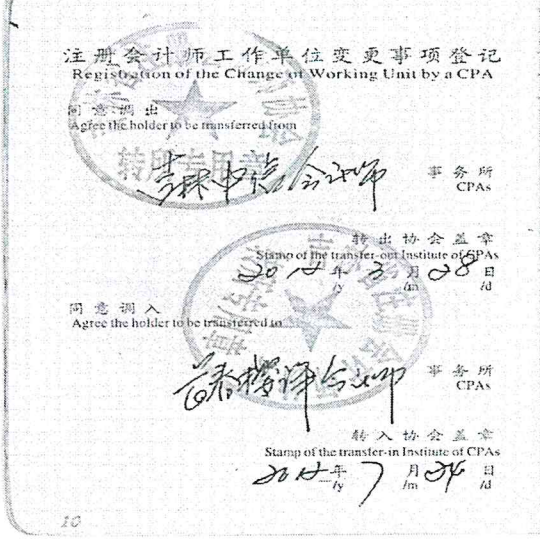 注册会计师工作单位变更事项登记
Registration of the Change of Working Unit by a CPA
同意调出
Agree the holder to be transferred from
转所专用章
吉林中 会计师 事务所
CPAs
转出协会盖章
Stamp of the transfer-out Institute of CPAs
2012 年 3 月 28 日
/y /m /d
同意调入
Agree the holder to be transferred to
会计师 事务所
CPAs
转入协会盖章
Stamp of the transfer-in Institute of CPAs
2012 年 7 月 24 日
/y /m /d
10